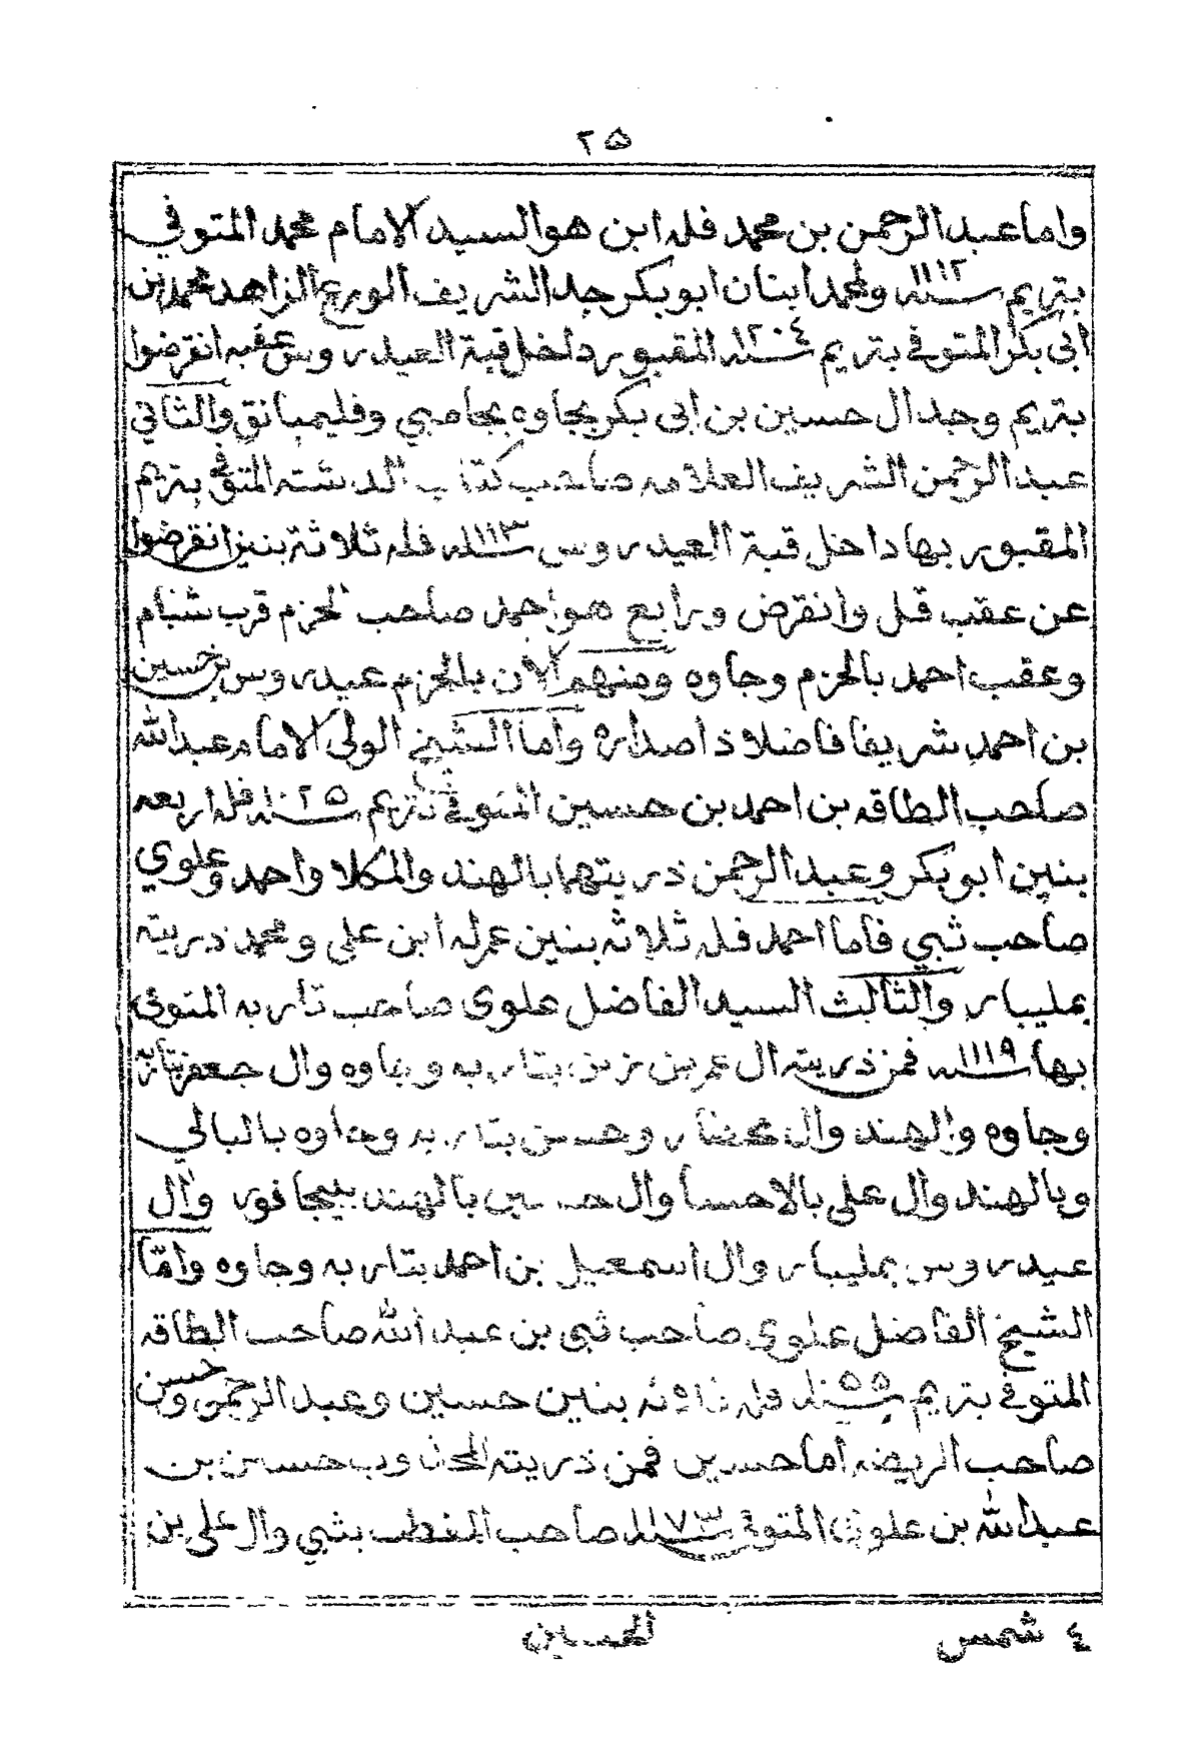 ٢٥
واما عبد الرحمن بن محمد فله ابن هو السيد الامام محمد المتوفي
بتريم سنة ١١١٢ ولمحمد ابنان ابو بكر جد الشريف الورع الزاهد محمد بن
ابي بكر المتوفي بتريم سنة ١٢٠٤ المقبور داخل قبة العيدروس عقبه انقرضوا
بتريم وجد ال حسين بن ابي بكر بجاوه بجامبي وفليمبانق والثاني
عبد الرحمن الشريف العلامه صاحب كتاب الدشته المتوفي بتريم
المقبور بها داخل قبة العيدروس سنه ١١١٣ فله ثلاثة بنين انقرضوا
عن عقب قل وانقرض ورابع هو احمد صاحب الحزم قرب شبام
وعقب احمد بالحزم وجاوه ومنهم الان بالحزم عيدروس بن حسين
بن احمد شريفا فاضلا ذا صدارة واما الشيخ الولي الامام عبد الله
صاحب الطاقه بن احمد بن حسين المتوفي بتريم سنه ١٠٢٥ فله اربعه
بنين ابو بكر وعبد الرحمن ذريتهما بالهند والمكلا واحمد وعلوي
صاحب ثبي فاما احمد فله ثلاثه بنين عمر له ابن علي ومحمد ذريته
بمليبار والثالث السيد الفاضل علوي صاحب تاربه المتوفي
بها سنه ١١١٩ فمن ذريته ال عمر بن زين بتاربه وجاوه وال جعفر بتاربه
وجاوه والهند وال محضار وحسن بتاربه وجاوه بالبالي
وبالهند وال علي بالاحسا وال حسين بالهند ببيجافور وال
عيدروس بمليبار وال اسمعيل بن احمد بتاربه وجاوه وامّا
الشيخ الفاضل علوي صاحب ثبي بن عبد الله صاحب الطاقه
المتوفي بتريم سنه فله ثلاثه بنين حسين وعبد الرحمن وحسن
صاحب الريضه اما حسين فمن ذريته المجذوب حسين بن
عبد الله بن علوي المتوفي سنه ١١٧٣ صاحب بثبي وال علي بن
٤ شمس الحسين